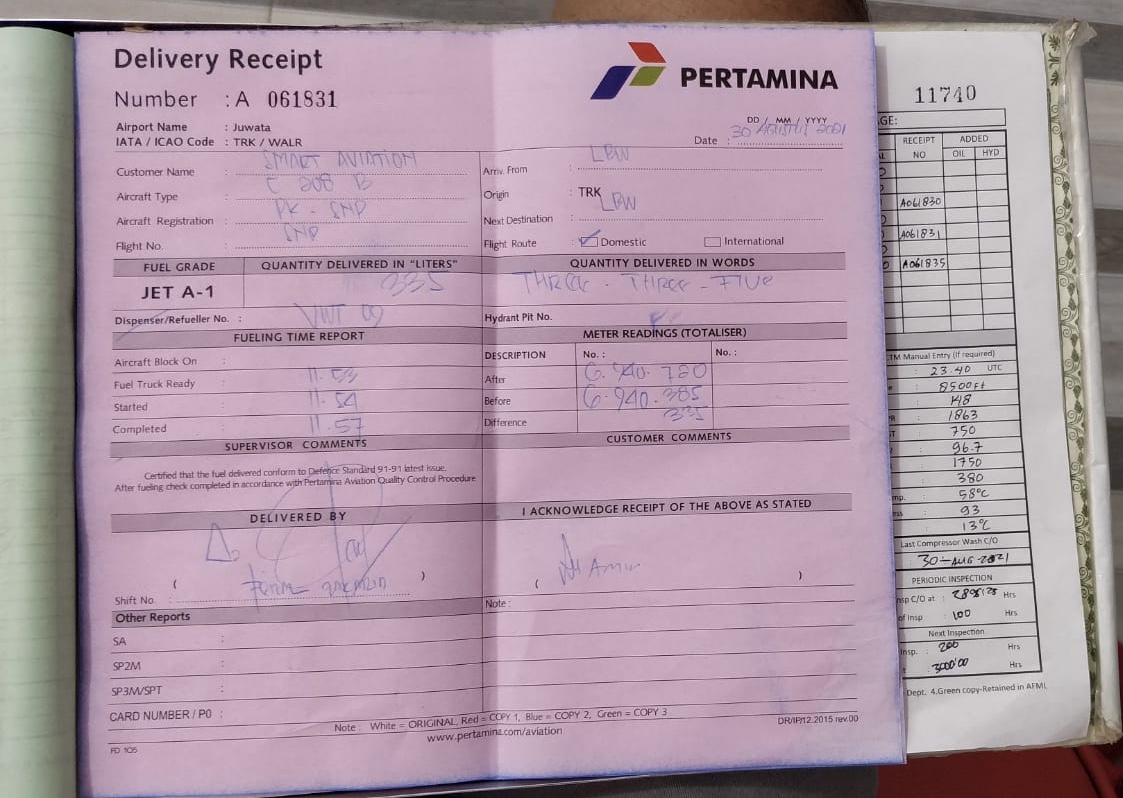 Delivery Receipt
PERTAMINA
Number : A 061831
Airport Name : Juwata
IATA / ICAO Code : TRK / WALR
DD / MM / YYYY
Date : 30 AGUSTUS 2021
Customer Name : SMART AVIATION
Arriv. From : LBW
Aircraft Type : C 208 B
Origin : TRK
Aircraft Registration : PK - SNP
Next Destination : LBW
Flight No. : SNP
Flight Route : Domestic International
FUEL GRADE QUANTITY DELIVERED IN "LITERS" QUANTITY DELIVERED IN WORDS
JET A-1 335 THREE - THREE - FIVE
Dispenser/Refueller No. : 09
Hydrant Pit No.
FUELING TIME REPORT METER READINGS (TOTALISER)
Aircraft Block On :
DESCRIPTION No. : No. :
Fuel Truck Ready : 11.53
After 6.940.720
Started : 11.54
Before 6.940.385
Completed : 11.57
Difference 335
SUPERVISOR COMMENTS CUSTOMER COMMENTS
Certified that the fuel delivered conform to Defence Standard 91-91 latest issue.
After fueling check completed in accordance with Pertamina Aviation Quality Control Procedure
DELIVERED BY I ACKNOWLEDGE RECEIPT OF THE ABOVE AS STATED
( ) ( Amir )
Shift No. :
Note :
Other Reports
SA :
SP2M :
SP3M/SPT :
CARD NUMBER / P0 :
Note : White = ORIGINAL, Red = COPY 1, Blue = COPY 2, Green = COPY 3
DR/IP12.2015 rev.00
www.pertamina.com/aviation
FD 105
11740
GE:
RECEIPT NO ADDED
OIL HYD
A061830
A061831
A061835
TM Manual Entry (if required)
: 23.40 UTC
: 8500 Ft
: 148
: 1863
: 750
: 96.7
: 1750
: 380
mp. : 58°C
ss : 93
: 13°C
Last Compressor Wash C/O
30-AUG-2021
PERIODIC INSPECTION
nsp C/O at : Hrs
of Insp : 100 Hrs
Next Inspection
nsp. : 200 Hrs
t : 3000'00 Hrs
Dept. 4.Green copy-Retained in AFML